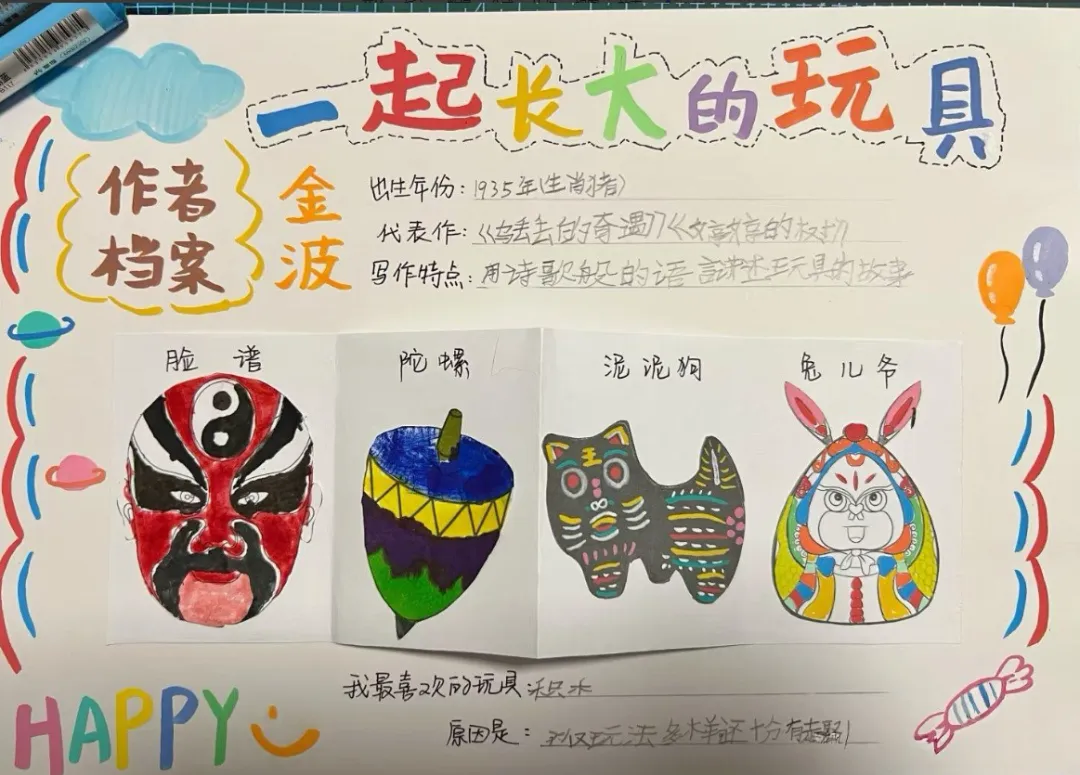 一起长大的玩具
作者
档案
金波
出生年份：1935年（生肖猪）
代表作：《乌丢丢的奇遇》《
写作特点：用诗歌般的语言讲述玩具的故事
脸谱
陀螺
泥泥狗
兔儿爷
我最喜欢的玩具
原因是：不仅玩法多样还十分有趣
HAPPY